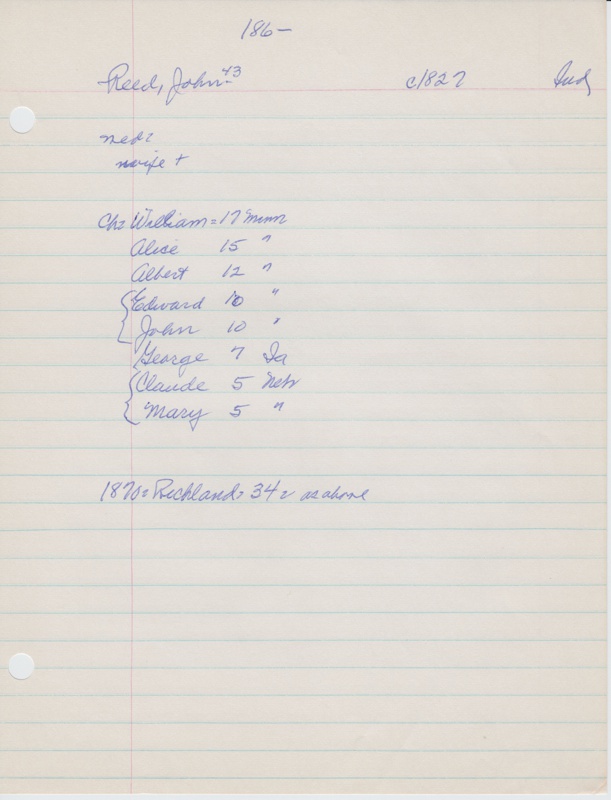 186-
Reed, John-43 c1827 Ind
med:
wife +
Ch: William = 17 Minn
Alice 15 "
Albert 12 "
Edward 10 "
John 10 "
George 7 Ia
Claude 5 Nebr
Mary 5 "
1870: Richland: 34: as above